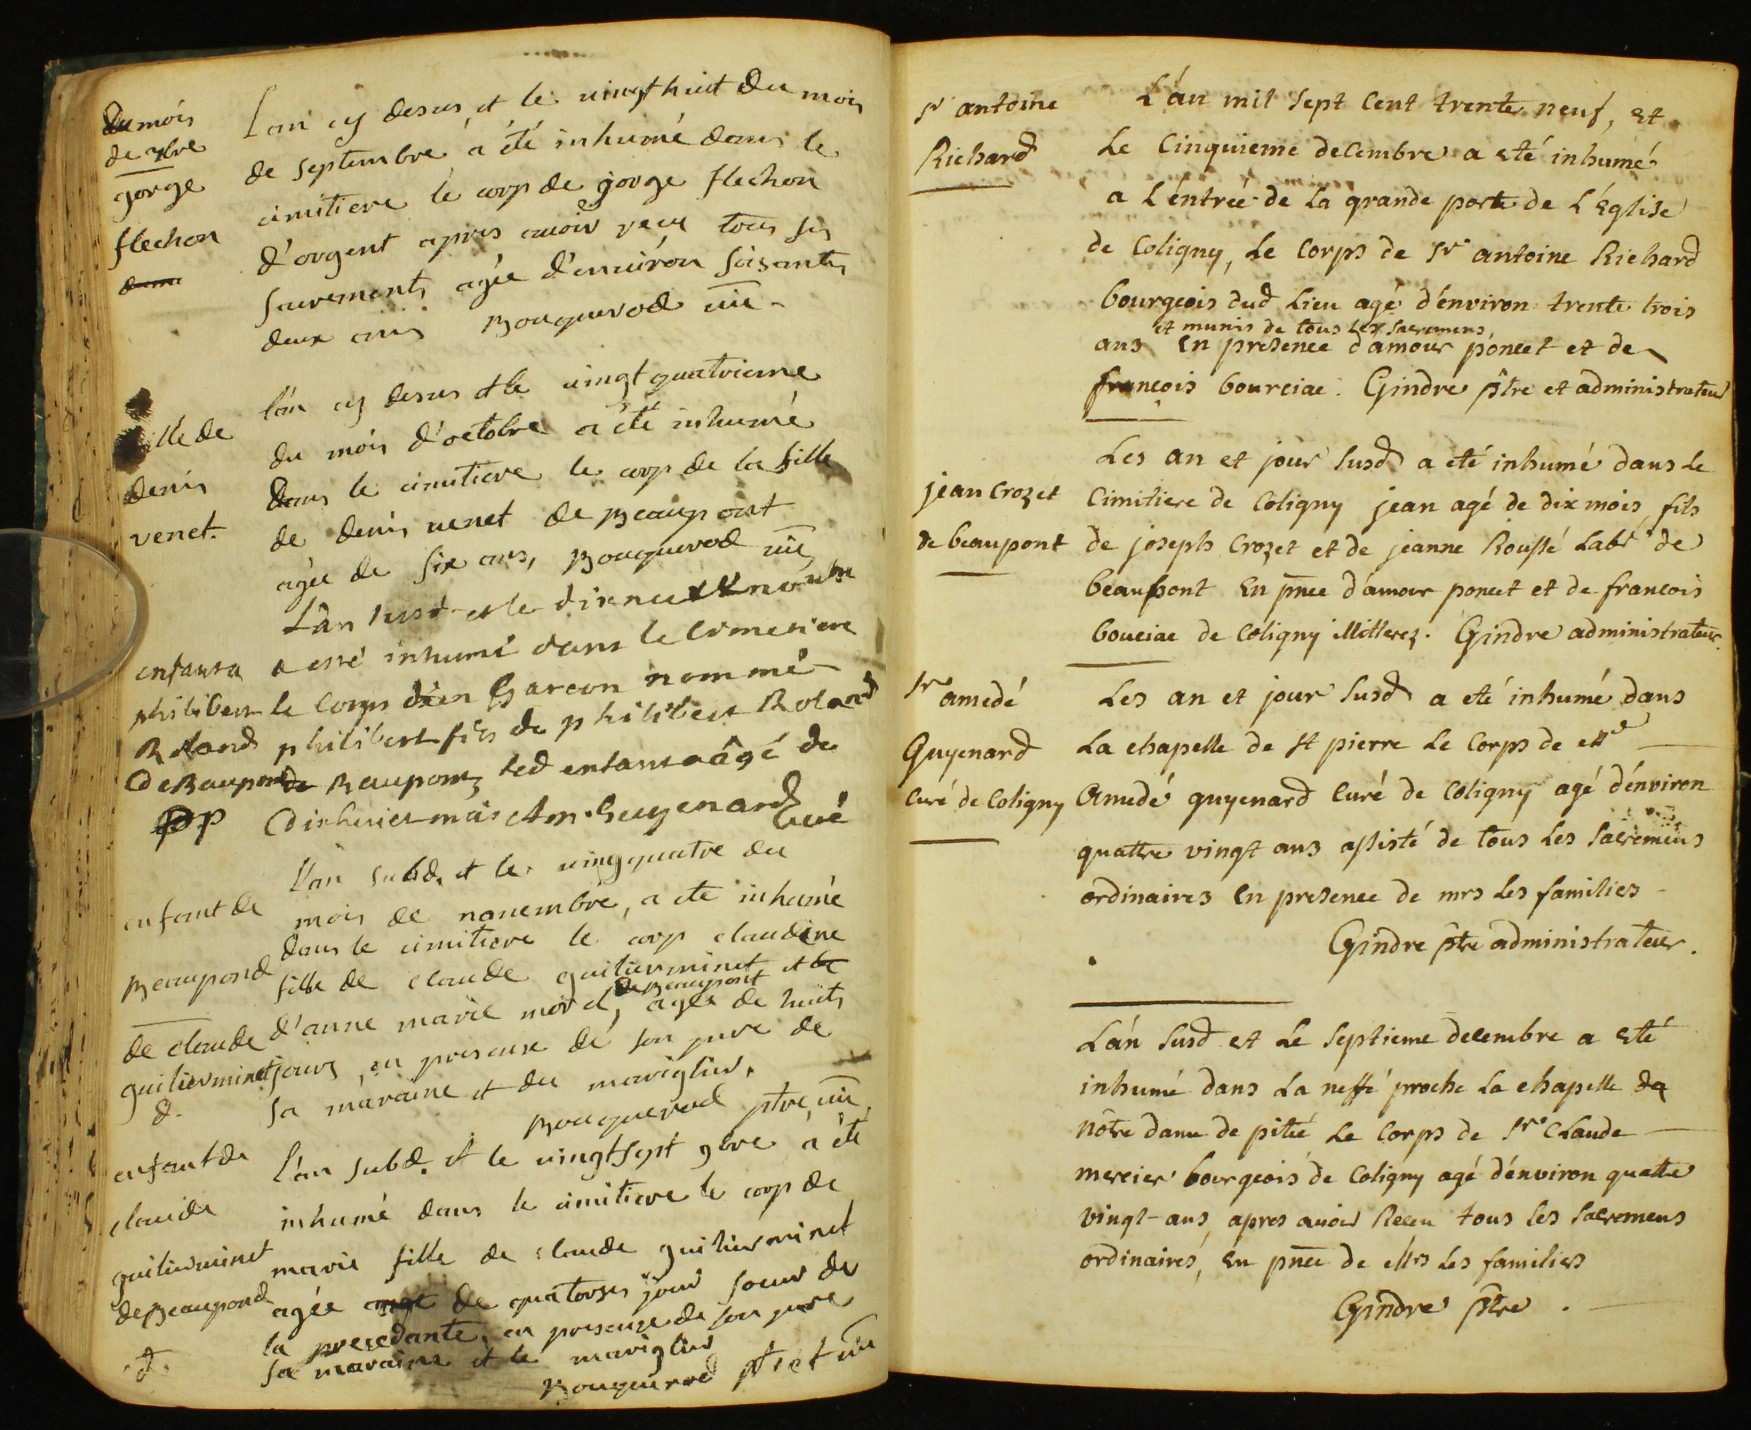 du mois
de 7bre
gorge
flechon
L'an cy desus, et le vingt huit du mois
de septembre a été inhumé dans le
cimitiere le corp de gorge flechon
d'orgent apres avoir reçu tous ses
sacrements agée d'environ soisante
deux ans Bouquerod vic
fille de
denis
venet.
l'an cy desus et le vingt quatrieme
du mois d'octobre a été inhumé
dans le cimitiere le corp de la fille
de denis venet de Beaupont
agée de six ans, Bouquerod vic
enfant a
philibert
Roland
de Beaupont
pp
L'an susd et le dixneuf novbre
a esté inhumé dans le Cimetiere
le Corps d'un Garcon nommé
philibert fils de philibert Roland
de Beaupont led enfant âgé de
dixhuict mois Am. Guyenard
Curé
enfant de
Beaupond
de claude
guilierminet
d.
L'an subd. et le vingquatre du
mois de novembre, a été inhumée
dans le cimitiere le corp claudine
fille de claude guilierminet et
de Beaupont
d'anne marie morel, agée de huits
jours, en presence de son pere de
sa maraine et du mariglier.
Bouquerod ptre vic
enfant de
claude
guilierminet
de Beaupond
d.
L'an subd. et le vingt sept 9bre a été
inhumé dans le cimitiere le corp de
marie fille de claude guilierminet
agée de quatorze jour soeur de
la precedante, en presence de son pere
sa maraine et le mariglier
Bouquerod ptre et vic
sr antoine
Richard
L'an mil sept cent trente neuf, et
Le Cinquieme decembre a eté inhumé
a L'éntrée de La grande porte de L'Eglise
de Coligny, Le Corps de Sr antoine Richard
bourgeois dud Lieu agé d'énviron trente trois
et munis de tous Les sacremens
ans En presence d'amour poncet et de
françois bourciac. Gindre ptre et administrateur
jean Crozet
de beaupont
Les an et jour susd a eté inhumé dans Le
Cimitiere de Coligny jean agé de dix mois, fils
de joseph Crozet et de jeanne Roussé Labr de
beaupont En pnce d'amour poncet et de francois
bouciac de Coligny illitterez. Gindre administrateur.
Sr amedé
Guyenard
Curé de Coligny
Les an et jour susd a eté inhumé dans
La chapelle de st pierre Le Corps de Mre
Amedé guyenard Curé de Coligny agé d'énviron
quattre vingt ans assisté de tous Les sacremens
ordinaires En presence de mrs Les familiers
Gindre ptre administrateur.
L'án susd et Le septieme decembre a eté
inhumé dans La neffé proche La chapelle de
nôtre dame de pitié Le Corps de Sr Claude
mercier bourgeois de Coligny agé d'énviron quatte
vingt ans, apres avoir Receu tous Les sacremens
ordinaires, En pnce de Mrs Les familiers
Gindre ptre.